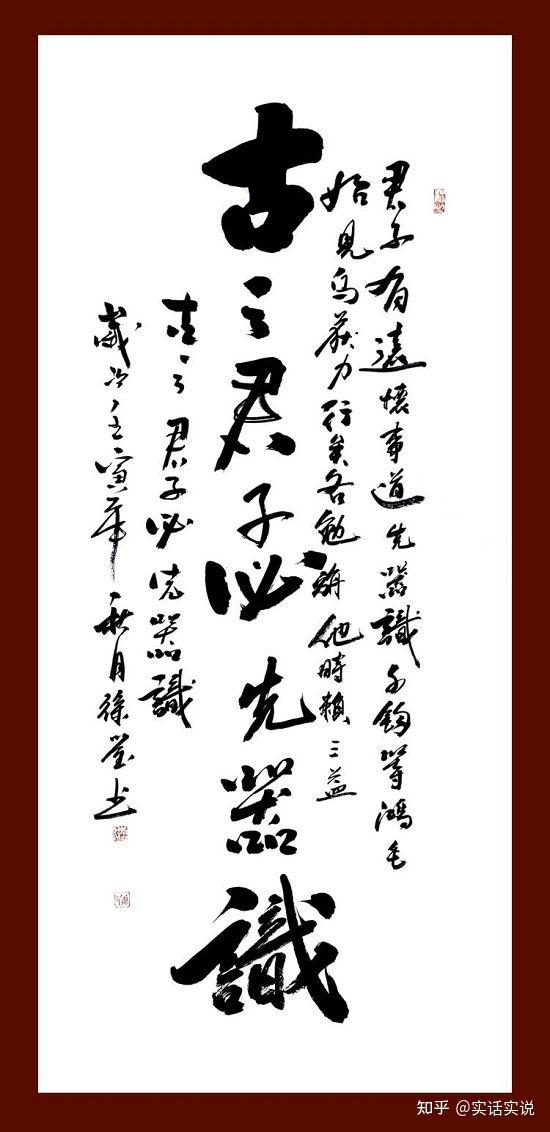 君子有遠懷事道先器識千鈞等鴻毛
始見烏获力行矣各勉旃他時賴三益
古之君子必先器識
古之君子必先器識
歲次壬寅年秋月徐瑩书
知乎 @实话实说